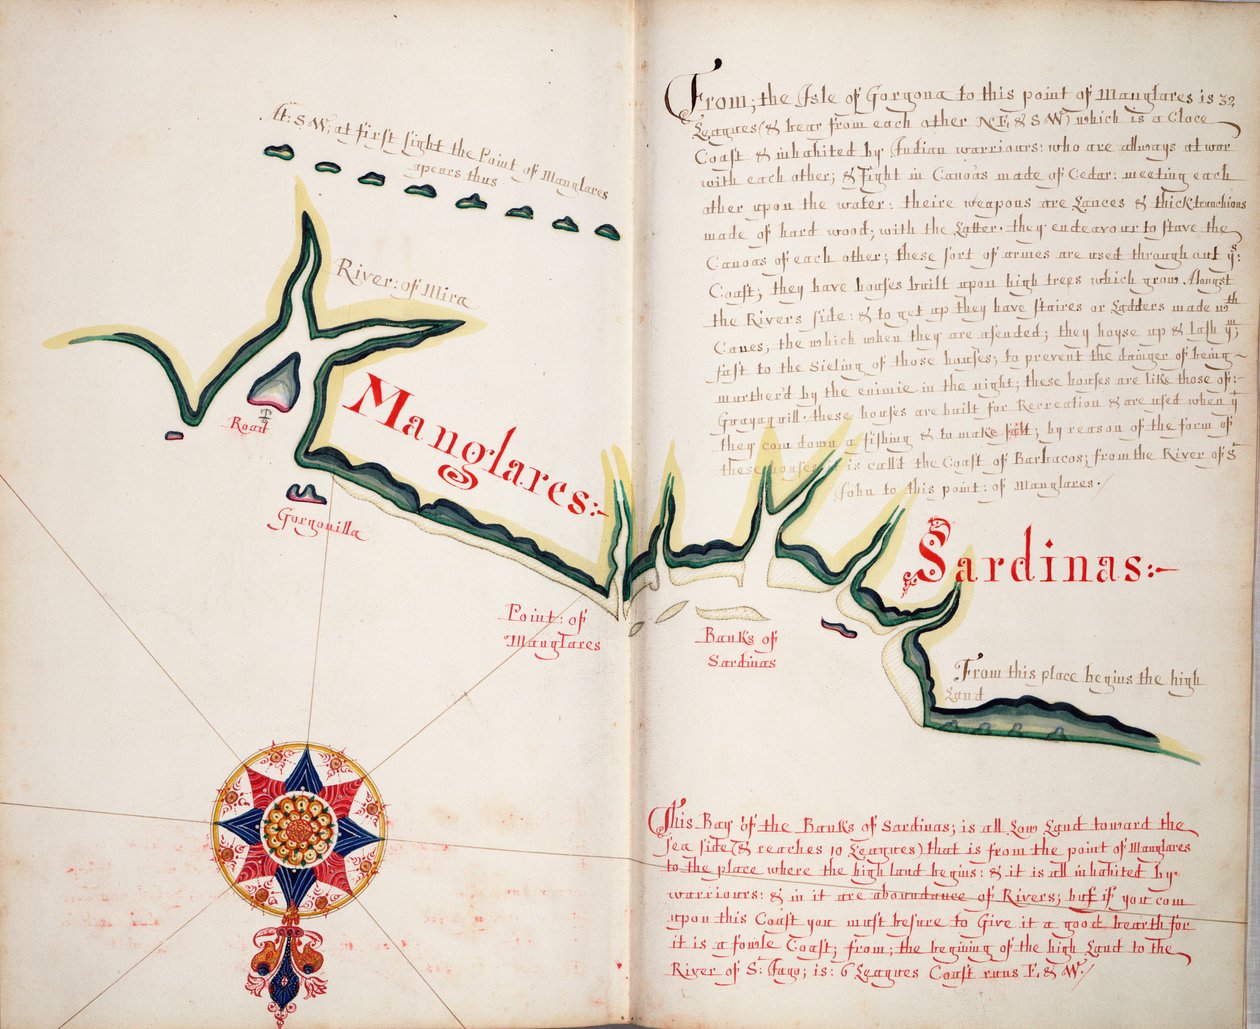 At: S.W; at first sight the Point of Manglares
apears thus
River: of Mira
Road
Manglares:-
Gorgonilla
Point: of
Manglares
From; the Isle of Gorgona to this point of Manglares is 32
Leagues (& bear from each other N.E, & S.W) which is a Cloce
Coast & inhabited by Indian warriours: who are allways at war
with each other; & fight in Canoas made of Cedar: meeting each
other upon the water: theire weapons are Lances & thick trunchions
made of hard wood; with the Latter they endeavour to stave the
Canoas of each other; these sort of armes are used through out ys:
Coast; they have houses built upon high trees which grow Alongst
the Rivers side: & to get up they have staires or Ladders made wth
Canes, the which when they are asended; they hoyse up & lash ym;
fast to the Sieling of those houses; to prevent the dainger of being
murther'd by the enimie in the night; these houses are like those of:
Guayaquill. these houses are built for Recreation & are used when
they com down a fishing & to make salt; by reason of the form of
these houses it is call'd the Coast of Barbacos; from the River of St
John to this point: of Manglares.
Sardinas:-
Banks of
Sardinas
From this place begins the high
Land
This Bay of the Banks of Sardinas; is all Low Land toward the
sea side (& reaches 10 Leagues) that is from the point of Manglares
to the place where the high land begins: & it is all inhabited by
warriours: & in it are aboundance of Rivers; but if you com
upon this Coast you must besure to Give it a good bearth for
it is a fowle Coast; from; the begining of the high Land to the
River of St: Jago; is: 6 Leagues Coast runs E, & W.